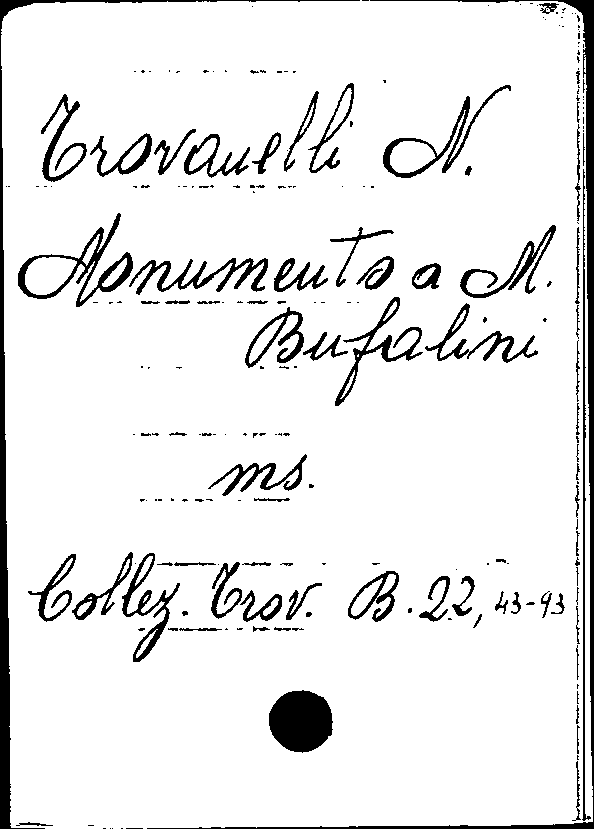 Trovanelli N.
Monumento a M.
Bufalini
ms.
Collez. Trov. B. 22, 43-93